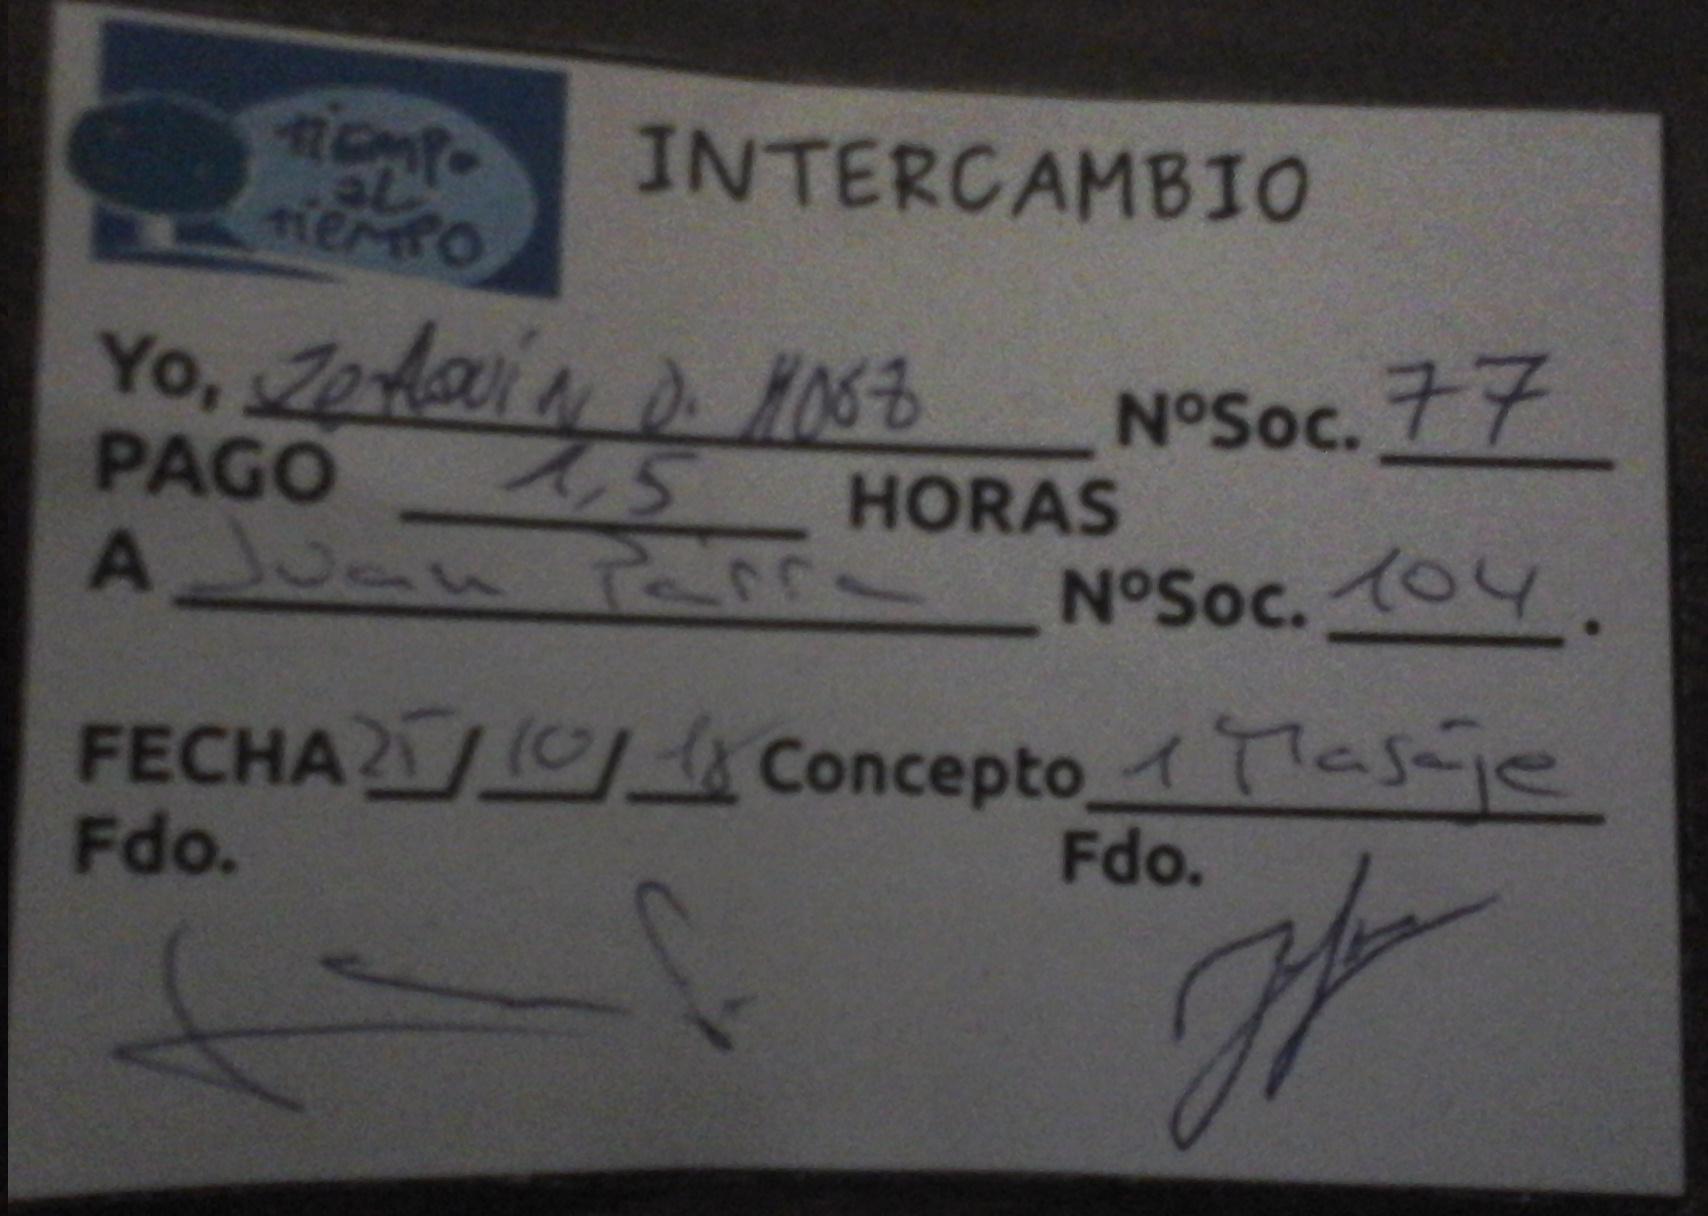 Tiempo
al
tiempo
INTERCAMBIO
Yo, D. NºSoc. 77
PAGO 1,5 HORAS
A Juan Parra NºSoc. 104.
FECHA 25/10/18 Concepto 1 Masaje
Fdo. Fdo.